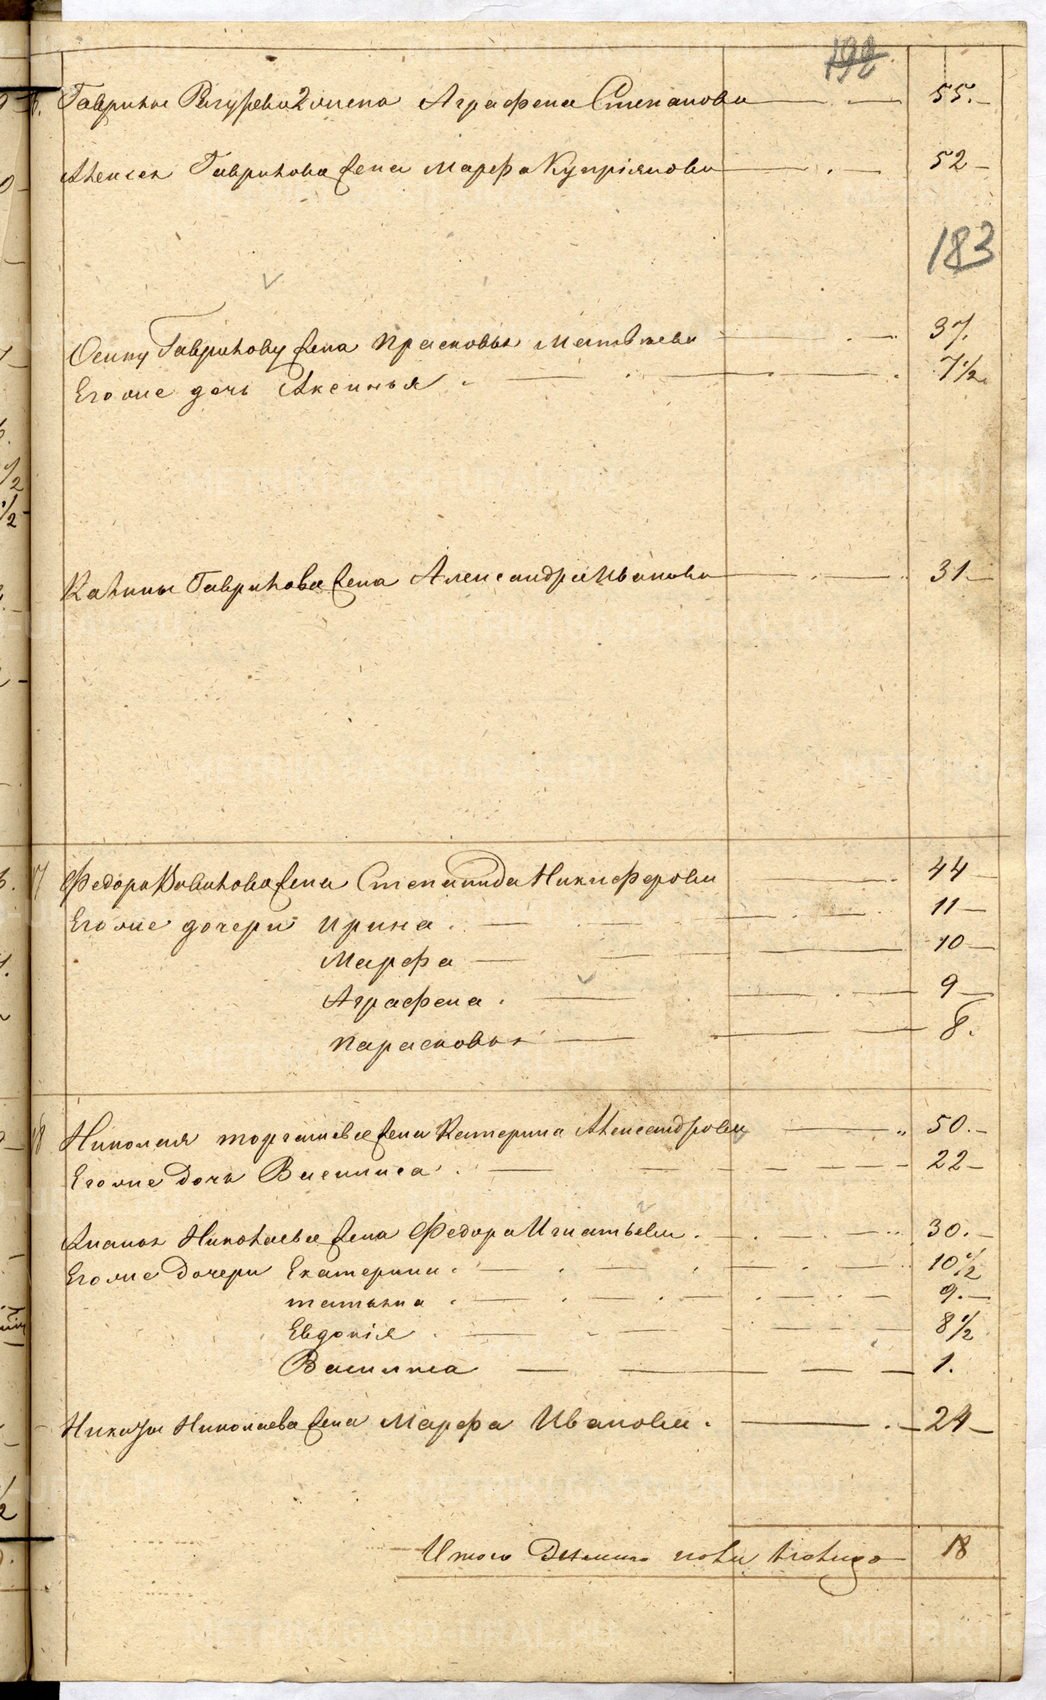 192
Гаврилы жена Аграфена Степанова 55.
Алексея Гаврилова жена Марфа Купріянова 52
183
Осипу Гаврилову жена Прасковья Матвеева 37.
Его же дочь Аксинья. 7 1/2
Калины Гаврилова жена Александра Иванова 31
7 Федора Вавилова жена Степанида Никиферова 44
Его же дочери Ирина. 11
Марфа 10
Аграфена. 9
Парасковья 8.
18 Николая жена Катерина Александрова 50.
Его же дочь Василиса 22
Николаева жена Федора Игнатьева. 30.
Его же дочери Екатерина. 10 1/2
татьяна. 9.
Евдокія. 8 1/2
Василиса 1.
Николаева жена Марфа Иванова. 24
Итого женского пола на лицо 18
METRIKI.GASO-URAL.RU